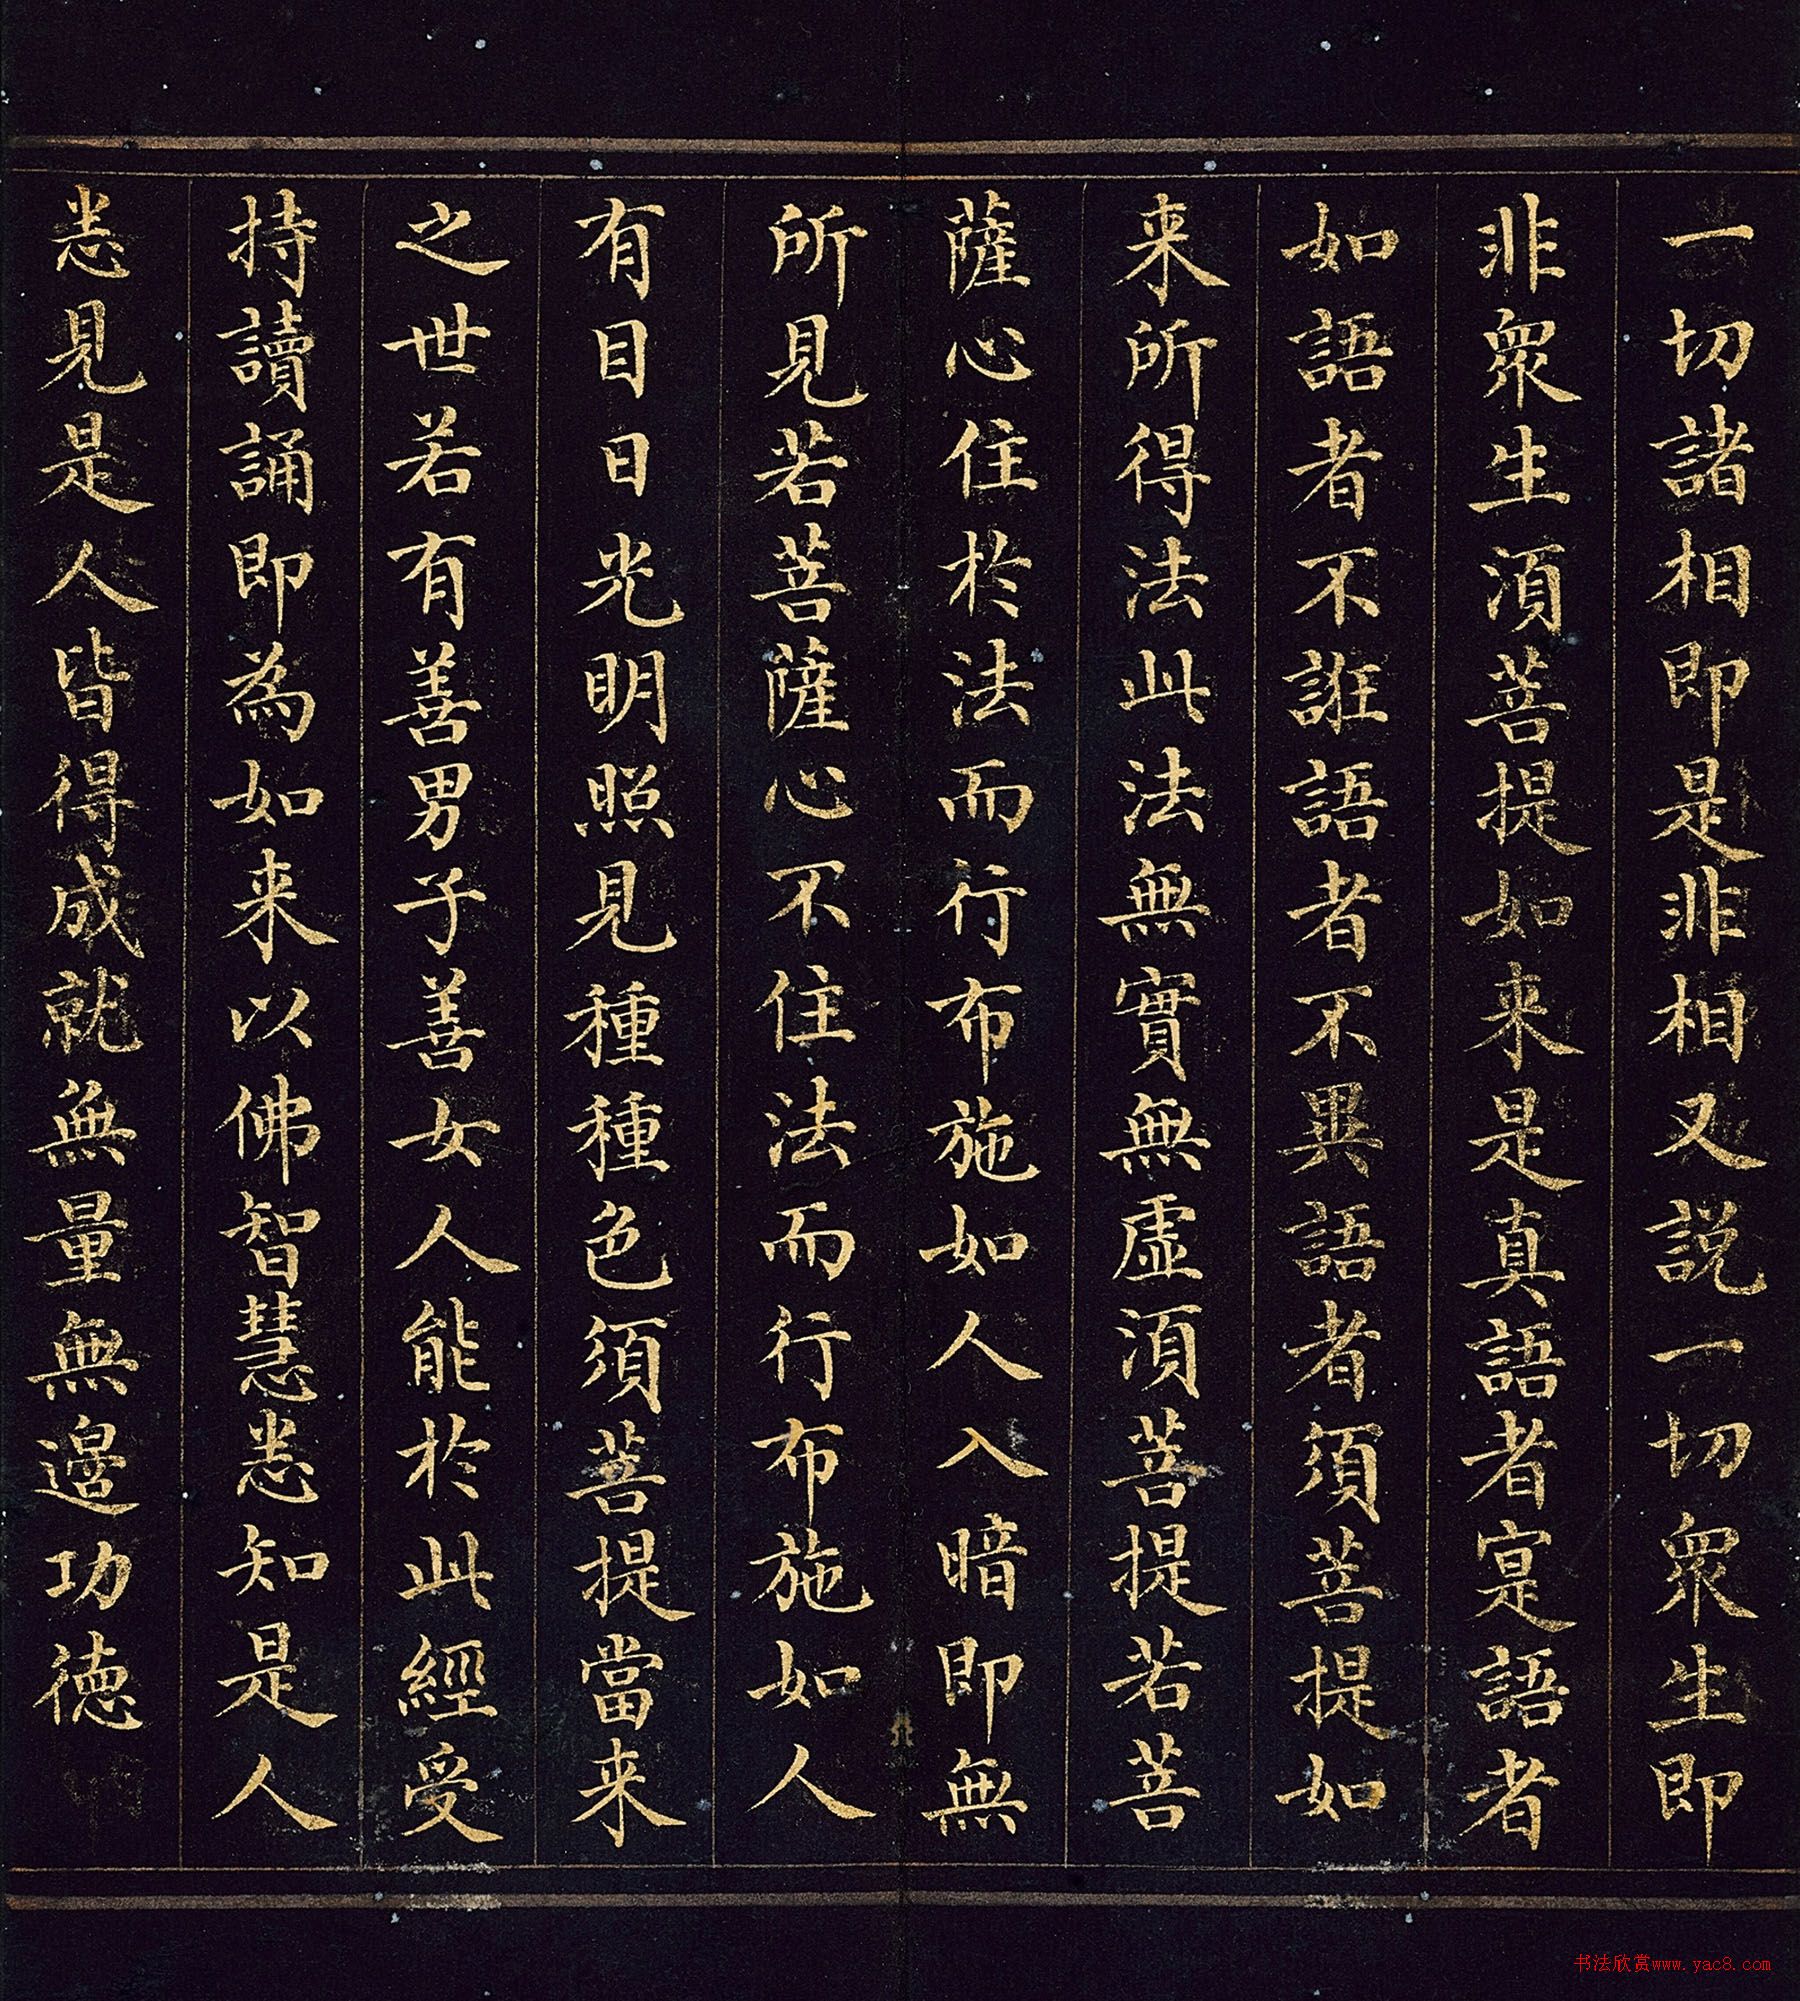 一切諸相即是非相又説一切衆生即
非衆生湏菩提如来是真語者寔語者
如語者不誑語者不異語者須菩提如
来所得法此法無實無虛湏菩提若菩
薩心住於法而行布施如人入暗即無
所見若菩薩心不住法而行布施如人
有目日光明照見種種色須菩提當来
之世若有善男子善女人能於此經受
持讀誦即為如来以佛智慧悉知是人
悉見是人皆得成就無量無邊功徳
书法欣赏www.yac8.com